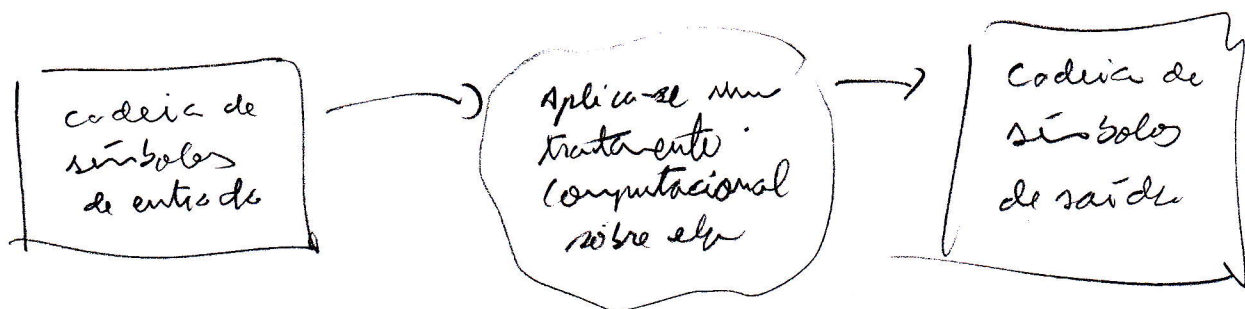 cadeia de
símbolos
de entrada
Aplica-se um
tratamento
computacional
sôbre ela
Cadeia de
símbolos
de saída